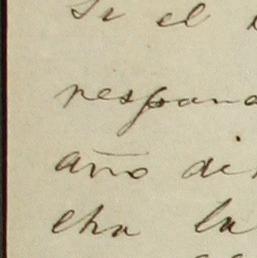 Si el
respond
año di
cha la